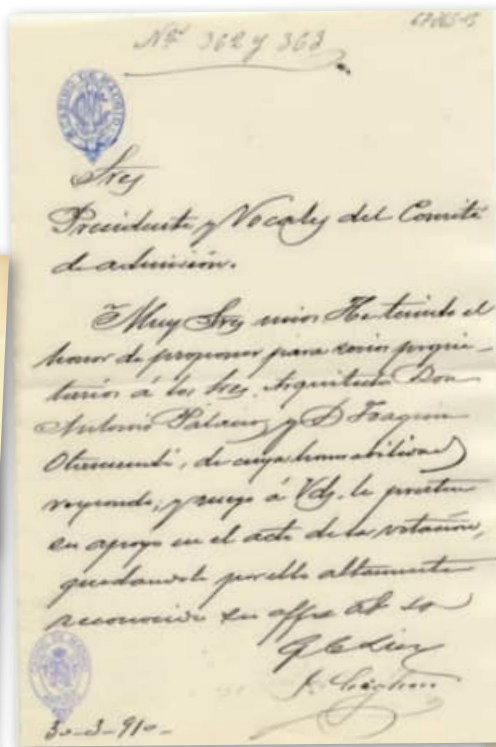 Nos 362 y 363
CASINO DE MADRID
Sres
Presidente y Vocales del Comité
de admisión.
Muy Sres mios He tenido el
honor de proponer para socios propie-
tarios á los Sres. Arquitectos Don
Antonio Palacios y D Joaquin
Otamendi, de cuya honorabilidad
respondo; y ruego á Vds. le presten
su apoyo en el acto de la votación,
quedandole por ello altamente
reconocido su
CASINO DE MADRID
30-3-910-